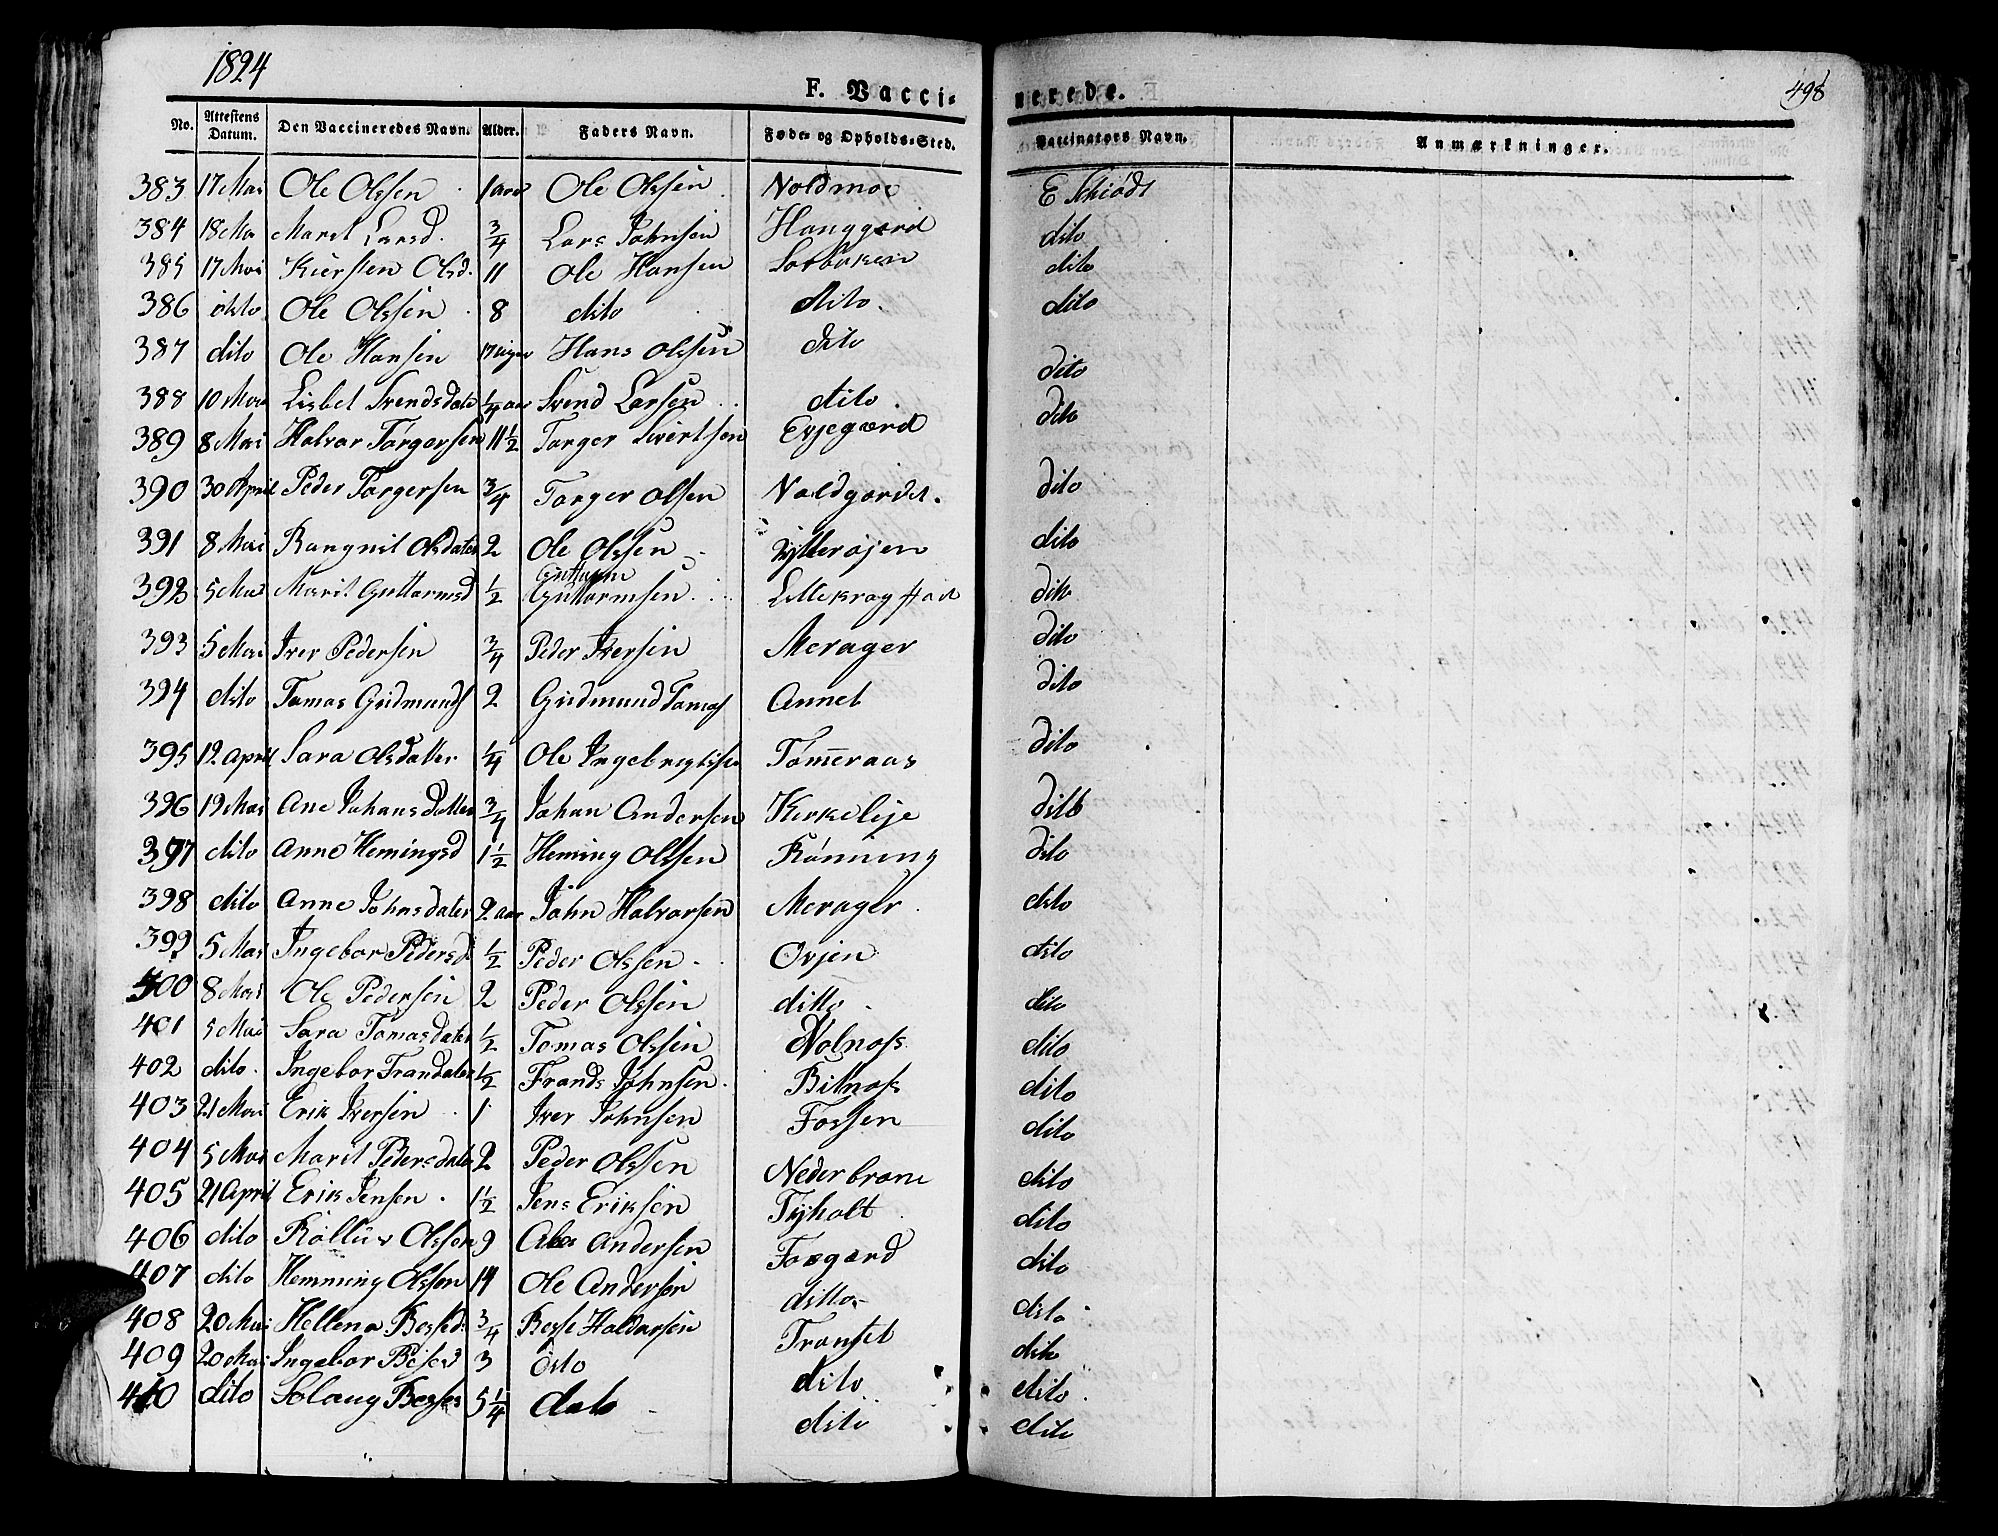 1824
F. Vacci-
nerede.
498
No. Attestens Datum. Den Vaccineredes Navn. Alder. Faders Navn. Føde- og Opholds-Sted. Vaccinators Navn. Anmærkninger.
383 17 Mai Ole Olssen 1 aar Ole Olssen Noldmoe E Schiødt
384 18 Ma Marit Larsd. 3/4 Lars Johnsen Hanggærd dito
385 17 Mai Kiersten Olsd. 11 Ole Hansen Solbaken dito
386 dito Ole Olssen 8 dito dito. dito
387 dito Ole Hansen 17 uger Hans Olssen dito dito
388 10 Mai Lisbet Svendsdater 1/4 aar Svend Larsen dito. dito
389 8 Mai Halvar Torgersen 11 1/2 Torger Sivertsen Evjegærd dito
390 30 April Peder Torgersen 3/4 Torger Olsen Noldgærdet. dito
391 8 Mai Rangnil Olsdater 2 Ole Olssen Yttterøjen dito
392 5 Mai Marit Guttormsd 1/2 Guttorm Guttormsen Lillekragstad dito
393 5 Mai Iver Pedersen 3/4 Peder Iversen Merager dito
394 dito Tomas Gudmunds 2 Gudmund Tomas Annet dito
395 12 April Sara Olsdatter 1/4 Ole Ingebregtsen Tømeraas dito
396 19 Mai Ane Johansdatter 3/4 Johan Andersen Kirkelije dito
397 dito Anne Hemingsd 1 1/2 Heming Olssen Rønning dito
398 dito Anne Johnsdater 2 aar John Halvarsen Merager. dito
399 5 Mai Ingebor Pedersd 1/2 Peder Olssen Ovjen dito
400 8 Mai Ole Pedersen 2 Peder Olssen ditto dito
401 5 Mai Sara Tomasdater 1/2 Tomas Olssen Nolnæss dito
402 dito. Ingebor Frandsdater 1/2 Frands Johnsen. Bitnæs dito
403 21 Mai Erik Iversen 1 Iver Johnsen Fossen dito
404 5 Mai Marit Pedersdater 2 Peder Olssen Nederbrone dito
405 21 April Erik Jensen. 1 1/2 Jens Eriksen Tyholt dito
406 dito Olssen 9 Andersen Fosgærd dito
407 dito Hemming Olssen 14 Ole Andersen ditto dito
408 20 Mai Hellena Bersed. 3/4 Berse Haldorsen Transet dito
409 20 Mai Ingebor Bersed 3 dito dito dito
410 dito Solaug Berses 5 1/4 dito dito dito